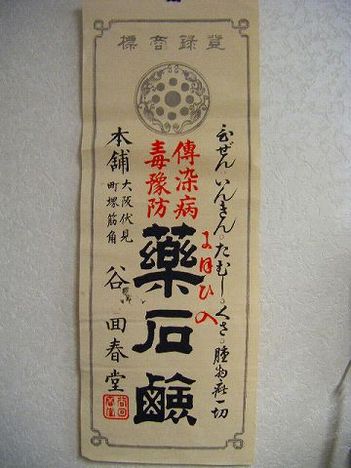 標商録登
ひぜん いんきん たむし くさ 腫物疵一切
傳染病
毒豫防
によひの
藥石鹸
本舗
大阪伏見
町堺筋角
谷
回春堂